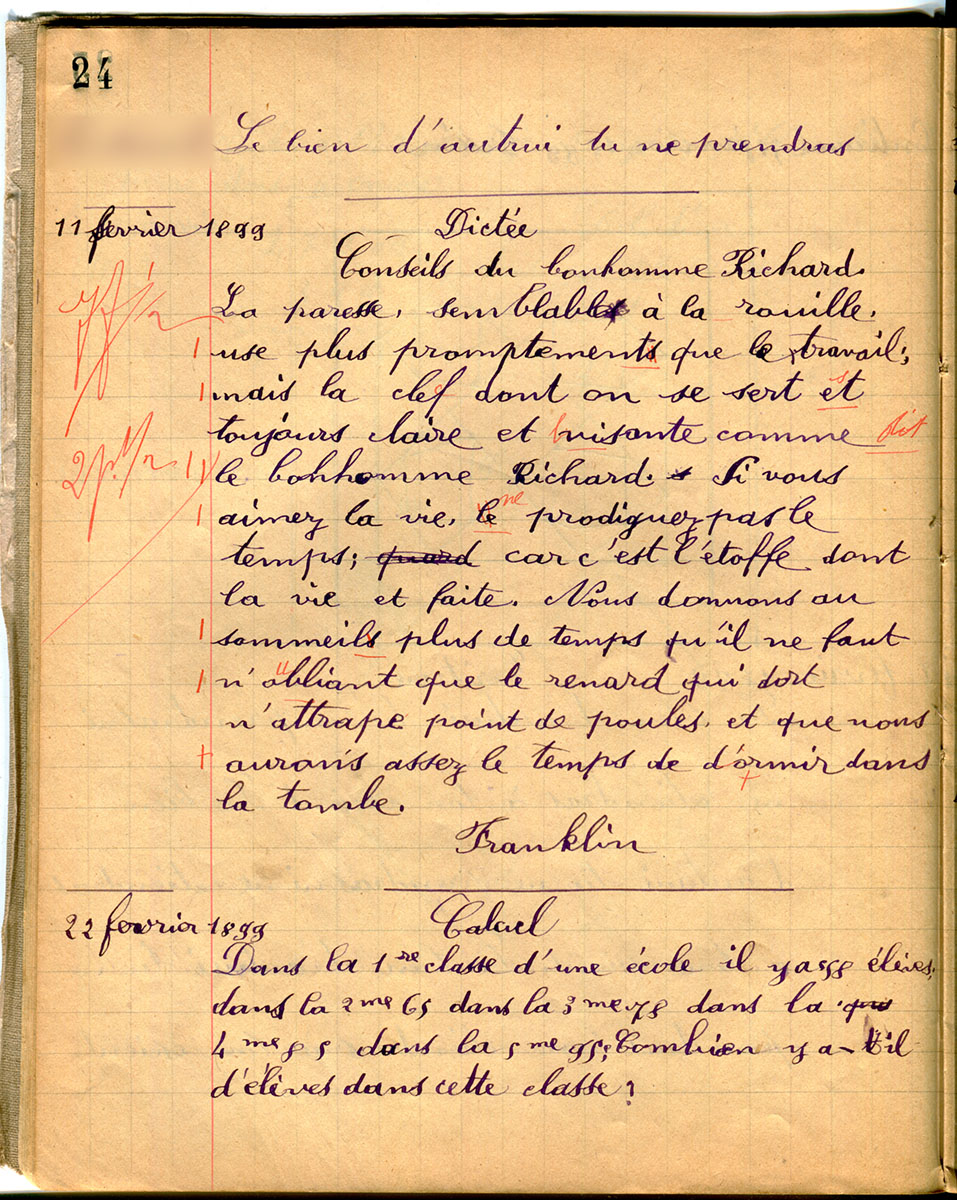 24
Le bien d'autrui tu ne prendras
11 fevrier 1899 Dictée
Conseils du bonhomme Richard.
La paresse, semblable à la rouille,
use plus promptements que le travail;
mais la clef dont on se sert est
toujours claire et luisante comme dit
le bonhomme Richard. Si vous
aimez la vie, le ne prodiguez pas le
temps; quard car c'est l'étoffe dont
la vie et faite. Nous donnons au
sommeils plus de temps qu'il ne faut
n'oubliant que le renard qui dort
n'attrape point de poules, et que nous
aurons assez le temps de d'ormir dans
la tombe.
Franklin
22 fevrier 1899 Calcul
Dans la 1re classe d'une école il y a 58 élèves,
dans la 2me 65 dans la 3me 78 dans la
4me 85 dans la 5me 95; Combien y a-til
d'élèves dans cette classe?